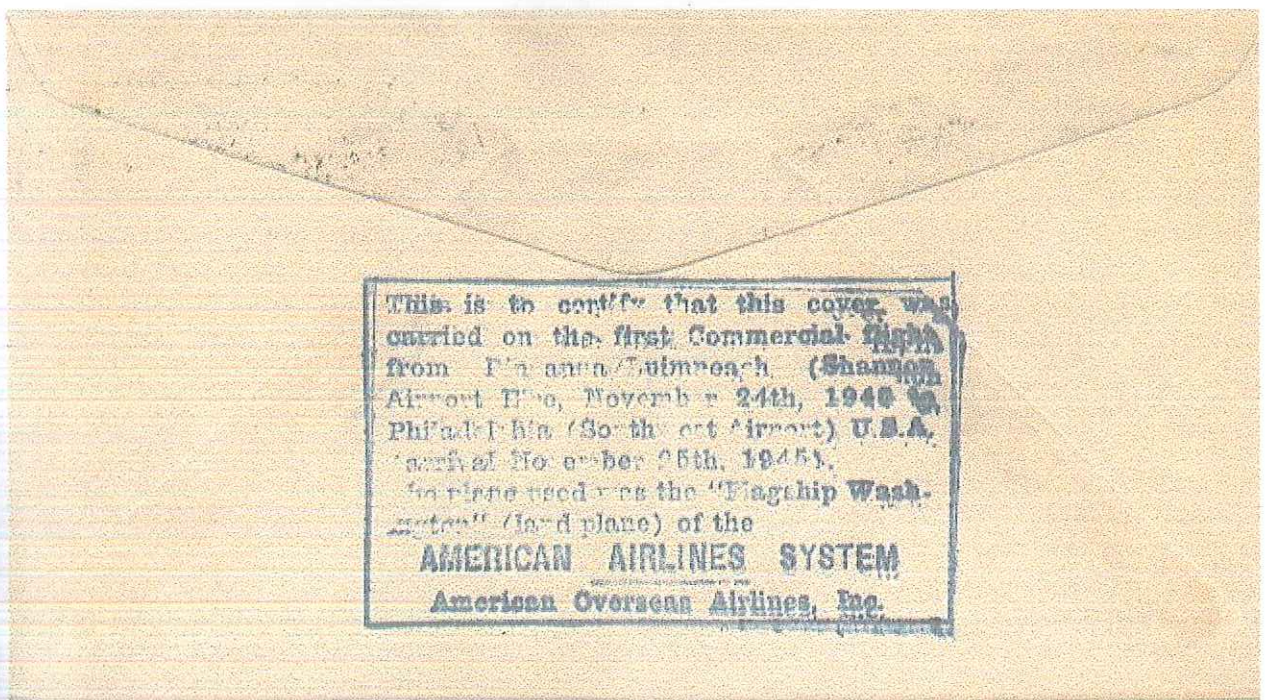 This is to certify that this cover was
carried on the first Commercial flight
from Luimneach (Shannon
Airport Eire, November 24th, 1945 to
Philadelphia (Southwest Airport) U.S.A.
arrival November 25th, 1945).
The plane used was the "Flagship Wash-
ington" (land plane) of the
AMERICAN AIRLINES SYSTEM
American Overseas Airlines, Inc.